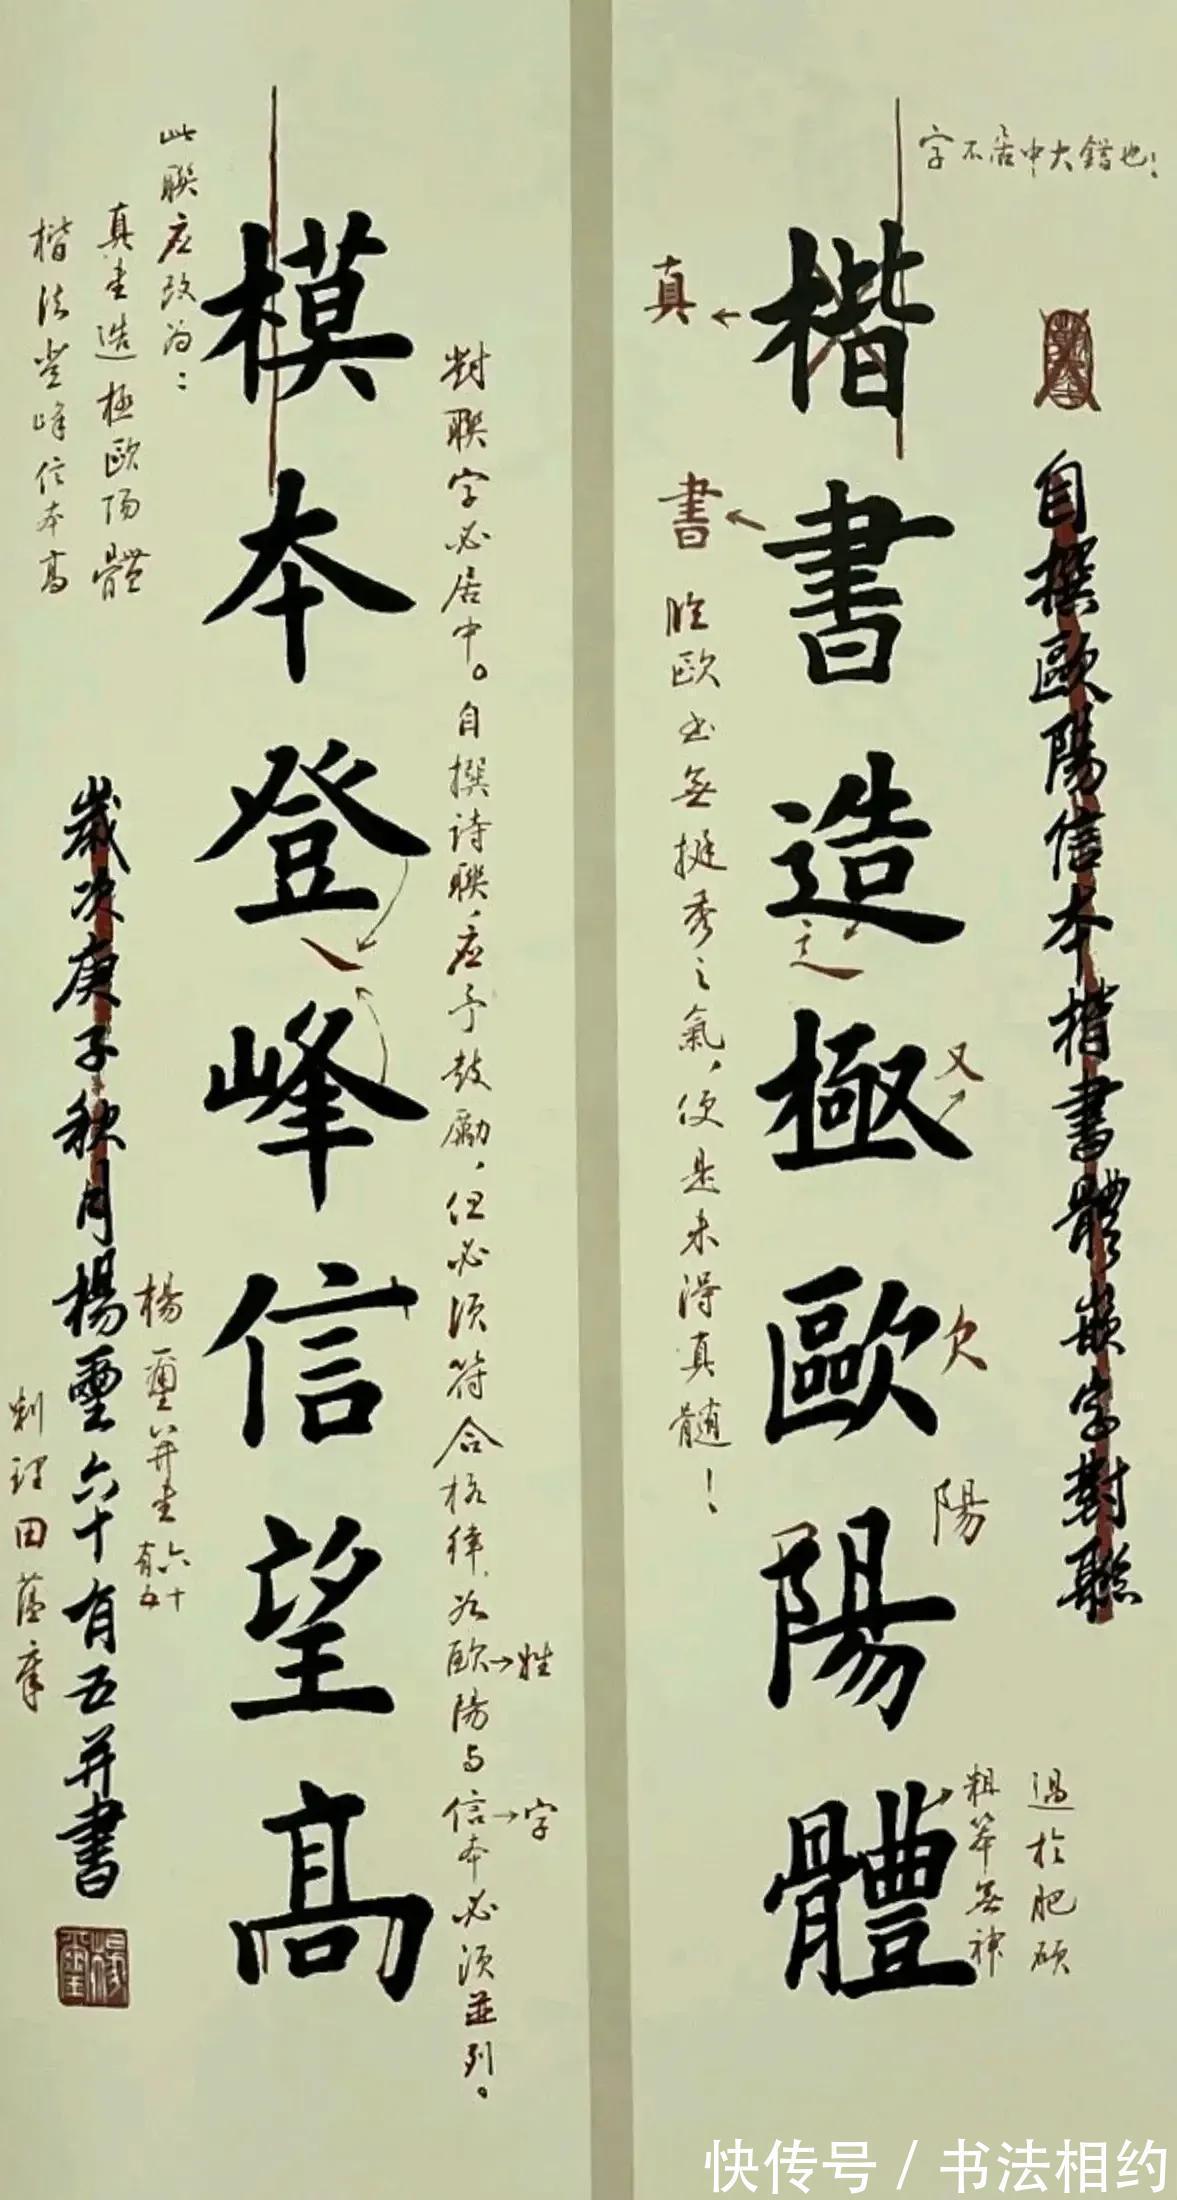 字不居中大錯也！
自撰歐陽信本楷書體嵌字對聯
楷書造極歐陽體
真
書
之
又
欠
陽
粗笨無神
過於肥碩
臨歐书無挺秀之氣，便是未得真髓！
對聯字必居中。自撰诗聯，应予鼓勵，但必须符合格律，如歐陽与信本必须並列。
姓
字
模本登峰信望高
此聯应改为：
真书造極歐陽體
楷法登峰信本高
歲次庚子秋月楊璽六十有五并書
楊璽并书
六十有五
快传号 / 书法相约